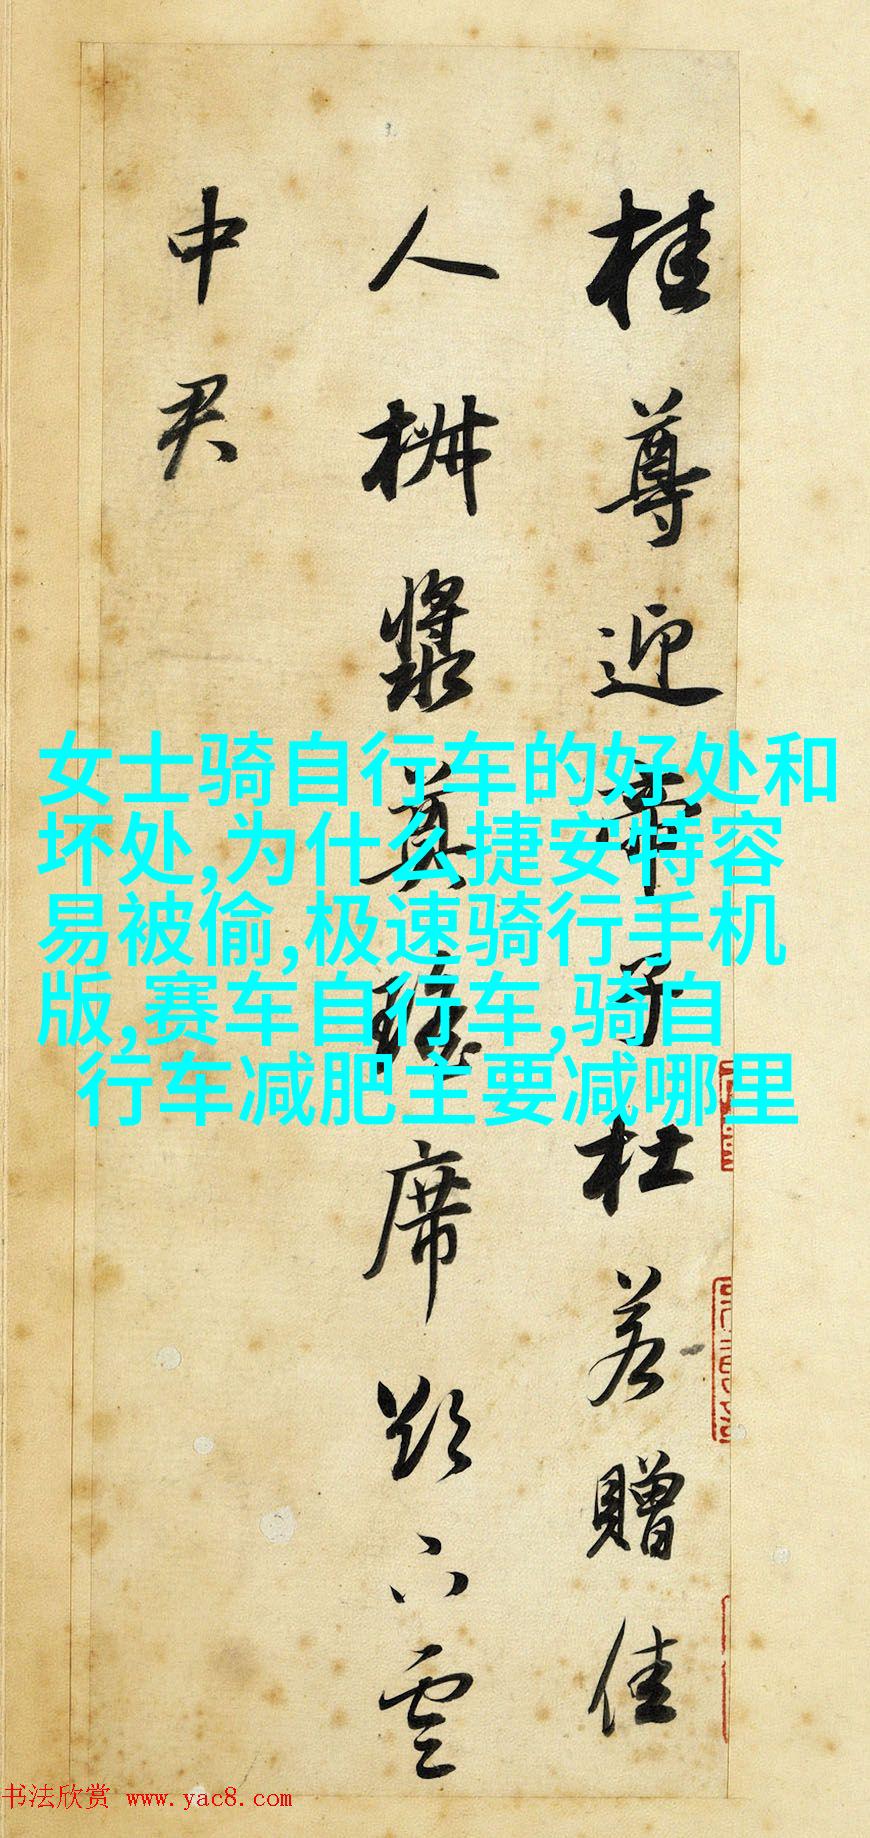 桂尊迎帝子杜若贈佳
人椒漿奠瑤席欲下雲
中君
女士骑自行车的好处和
坏处,为什么捷安特容
易被偷,极速骑行手机
版,赛车自行车,骑自
行车减肥主要减哪里
书法欣赏 www.yac8.com